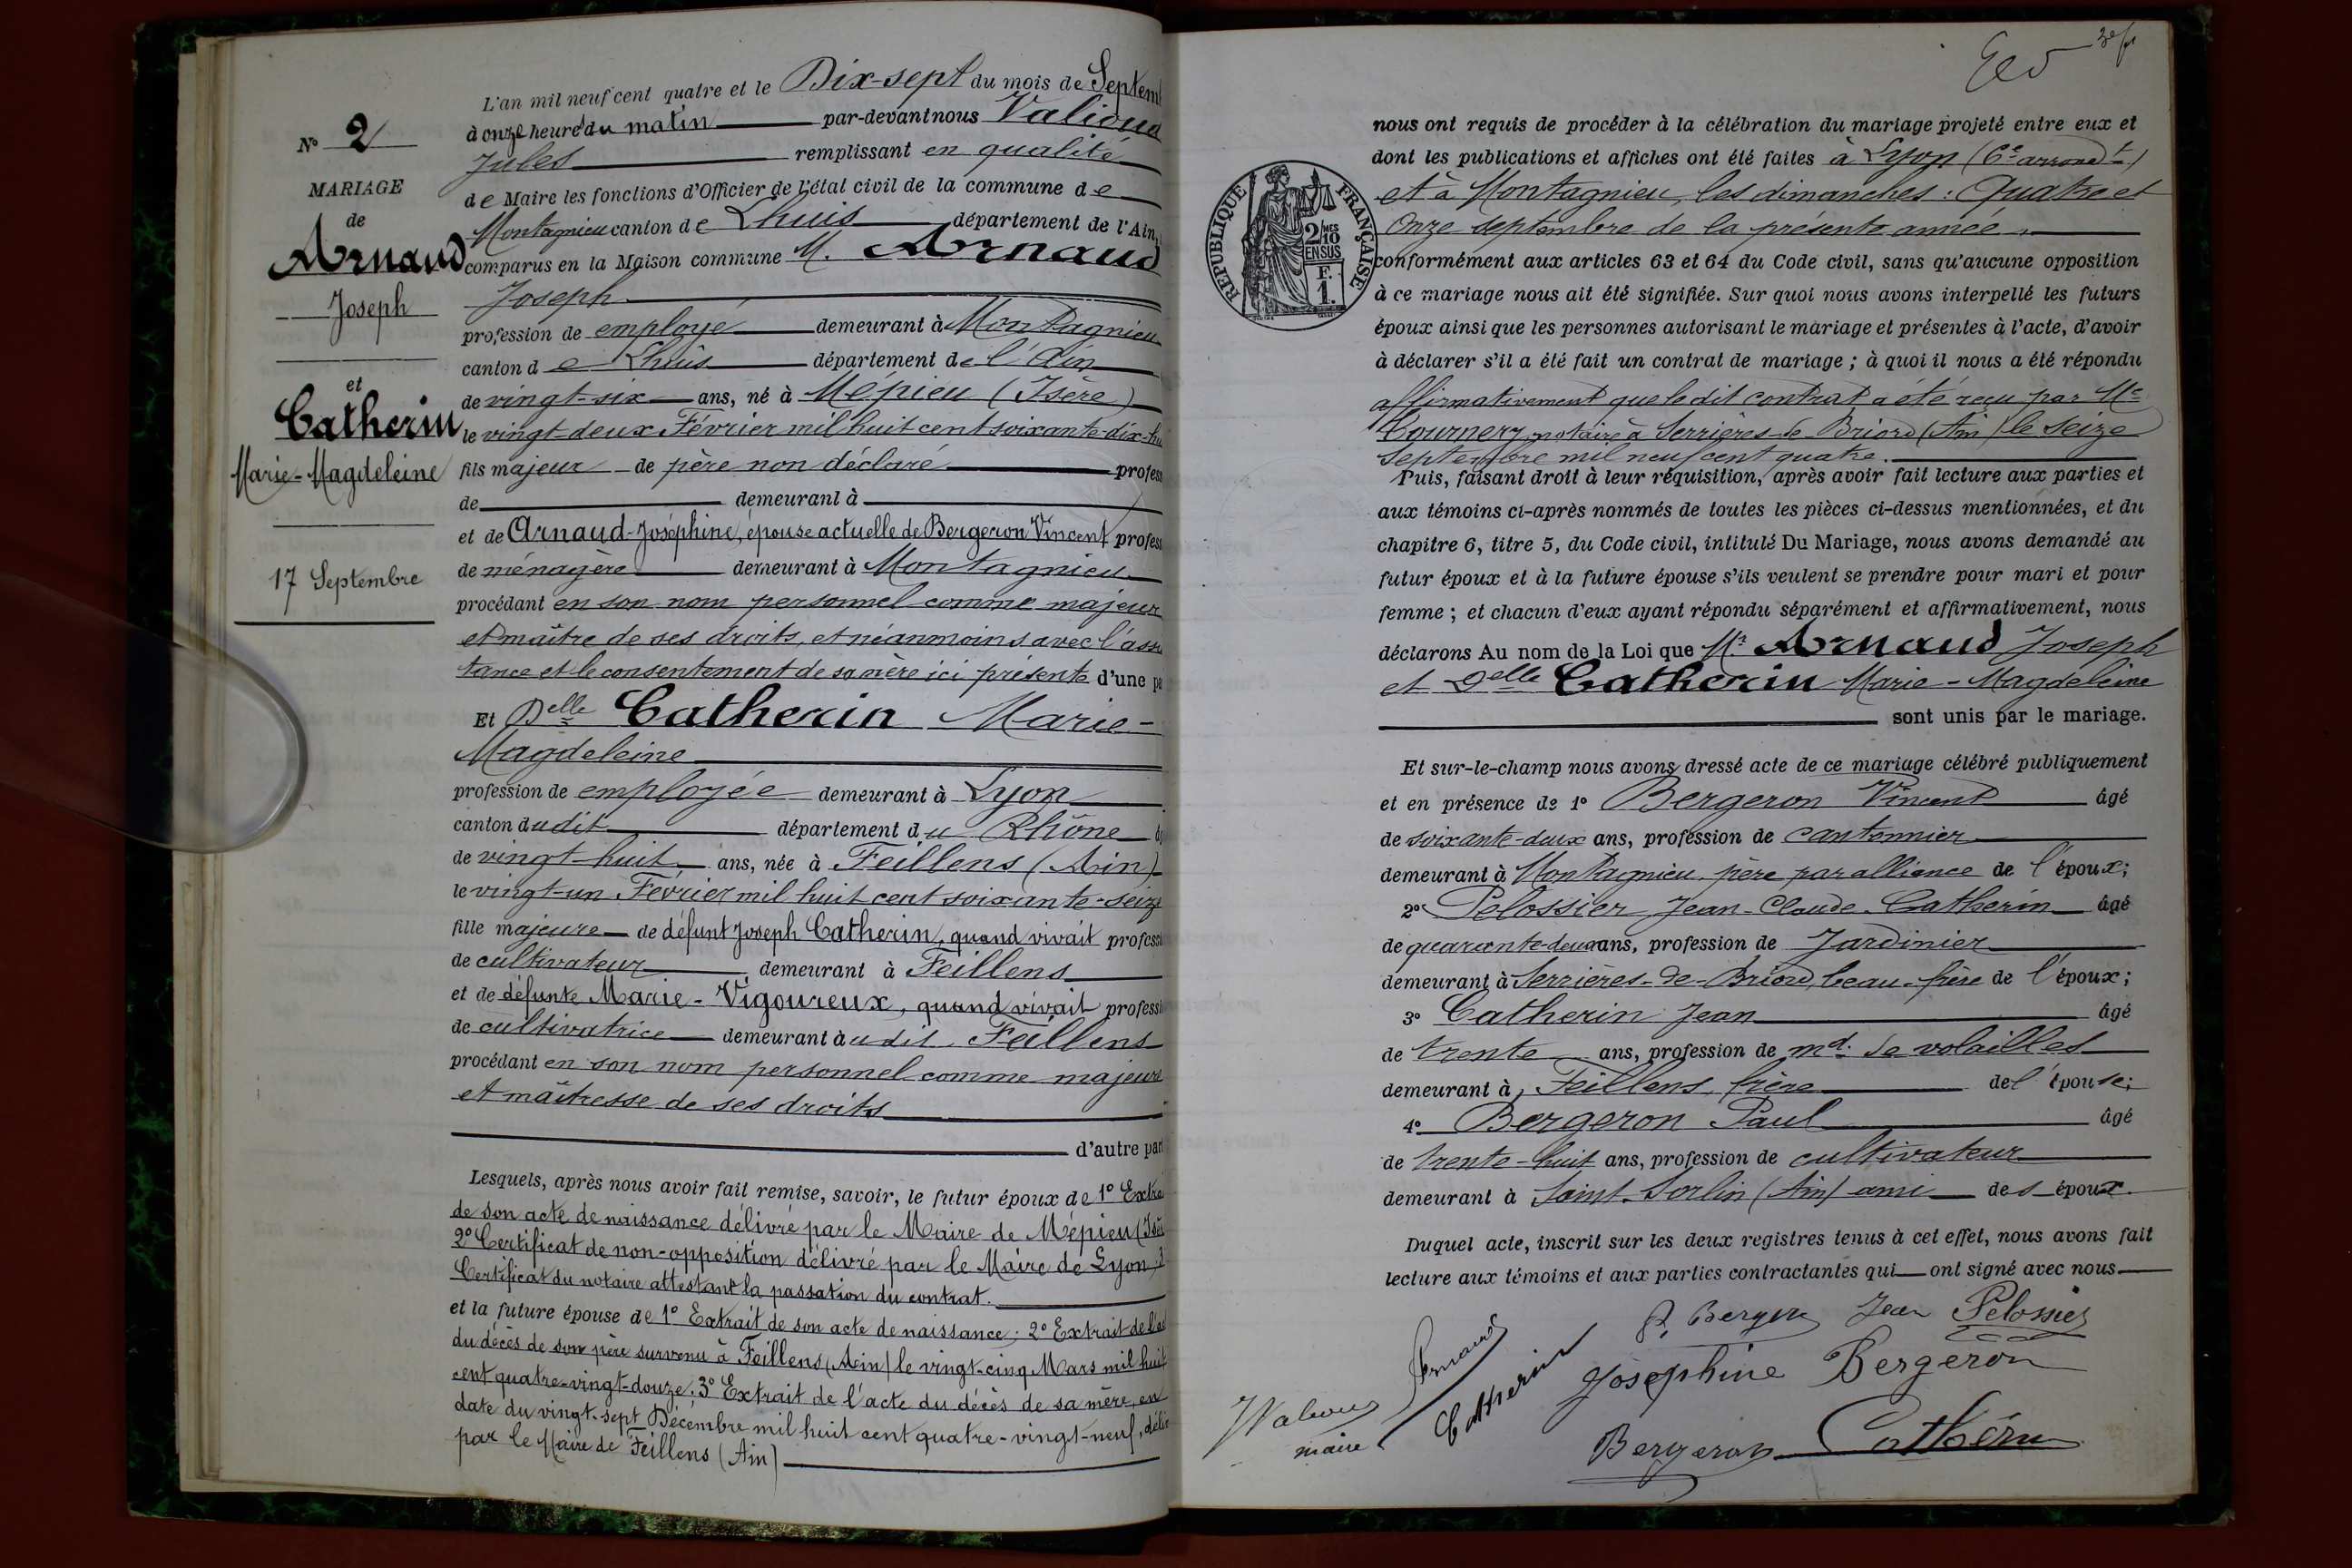 L'an mil neuf cent quatre et le Dix-sept du mois de Septem
à onze heures du matin par-devant nous
Jules remplissant en qualité
de Maire les fonctions d'Officier de l'état civil de la commune de
Montagnieu canton de Lhuis département de l'Ain,
comparus en la Maison commune M. Arnaud
Joseph
profession de employé demeurant à Montagnieu
canton de Lhuis département de l'Ain
de vingt-six ans, né à Mépieu (Isère)
le vingt-deux Février mil huit cent soixante-dix-hu
fils majeur de père non déclaré profess
de demeurant à
et de Arnaud-Joséphine, épouse actuelle de Bergeron Vincent profess
de ménagère demeurant à Montagnieu
procédant en son nom personnel comme majeur
et maître de ses droits, et néanmoins avec l'assis
tance et le consentement de sa mère ici présente d'une pa
Et Delle Catherin Marie-
Magdeleine
profession de employée demeurant à Lyon
canton dudit département du Rhône
de vingt-huit ans, née à Feillens (Ain)
le vingt-un Février mil huit cent soixante-seize
fille majeure de défunt Joseph Catherin, quand vivait professi
de cultivateur demeurant à Feillens
et de défunte Marie-Vigoureux, quand vivait professi
de cultivatrice demeurant audit Feillens
procédant en son nom personnel comme majeure
et maîtresse de ses droits
d'autre part
Lesquels, après nous avoir fait remise, savoir, le futur époux de 1° Extra
de son acte de naissance délivré par le Maire de Mépieu (Isè
2° Certificat de non-opposition délivré par le Maire de Lyon; 3
Certificat du notaire attestant la passation du contrat.
et la future épouse de 1° Extrait de son acte de naissance; 2° Extrait de l'act
du décès de son père survenu à Feillens (Ain) le vingt-cinq Mars mil huit
cent quatre-vingt-douze; 3° Extrait de l'acte du décès de sa mère, en
date du vingt-sept Décembre mil huit cent quatre-vingt-neuf, déliv
par le Maire de Feillens (Ain)
N° 2
MARIAGE
de
Arnaud
Joseph
et
Catherin
Marie-Magdeleine
17 Septembre
nous ont requis de procéder à la célébration du mariage projeté entre eux et
dont les publications et affiches ont été faites à Lyon (6e arrondt)
et à Montagnieu, les dimanches: Quatre et
Onze septembre de la présente année,
conformément aux articles 63 et 64 du Code civil, sans qu'aucune opposition
à ce mariage nous ait été signifiée. Sur quoi nous avons interpellé les futurs
époux ainsi que les personnes autorisant le mariage et présentes à l'acte, d'avoir
à déclarer s'il a été fait un contrat de mariage; à quoi il nous a été répondu
affirmativement que le dit contrat a été reçu par Me
notaire à Serrières-de-Briord (Ain) le seize
septembre mil neuf cent quatre.
Puis, faisant droit à leur réquisition, après avoir fait lecture aux parties et
aux témoins ci-après nommés de toutes les pièces ci-dessus mentionnées, et du
chapitre 6, titre 5, du Code civil, intitulé Du Mariage, nous avons demandé au
futur époux et à la future épouse s'ils veulent se prendre pour mari et pour
femme; et chacun d'eux ayant répondu séparément et affirmativement, nous
déclarons Au nom de la Loi que Mr Arnaud Joseph
et Delle Catherin Marie-Magdeleine
sont unis par le mariage.
Et sur-le-champ nous avons dressé acte de ce mariage célébré publiquement
et en présence de 1° Bergeron Vincent âgé
de soixante-deux ans, profession de cantonnier
demeurant à Montagnieu, père par alliance de l'époux;
2° Pelossier Jean-Claude Catherin âgé
de quarante-deux ans, profession de Jardinier
demeurant à Serrières-de-Briord, beau-frère de l'époux;
3° Catherin Jean âgé
de trente ans, profession de md. de volailles
demeurant à Feillens, frère de l'épouse;
4° Bergeron Paul âgé
de trente-huit ans, profession de cultivateur
demeurant à Saint-Sorlin (Ain) ami des époux.
Duquel acte, inscrit sur les deux registres tenus à cet effet, nous avons fait
lecture aux témoins et aux parties contractantes qui ont signé avec nous
REPUBLIQUE FRANÇAISE
2/10 MES
EN SUS
F.
1.
Jean Pelossier
Arnaud
Catherin
Joséphine Bergeron
maire
Bergeron Cathérin